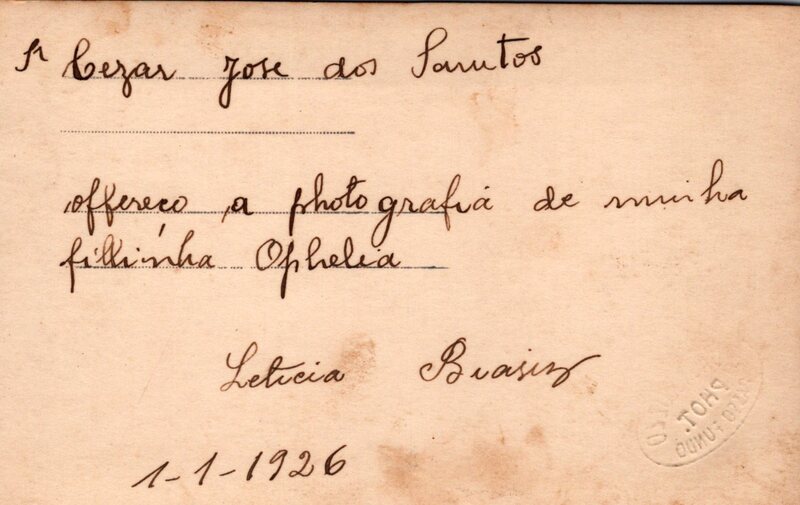 Sr Cezar Jose dos Santos
offereço a photografia de minha
filhinha Ophelia
Leticia
1-1-1926
PHOT.
PASSO FUNDO